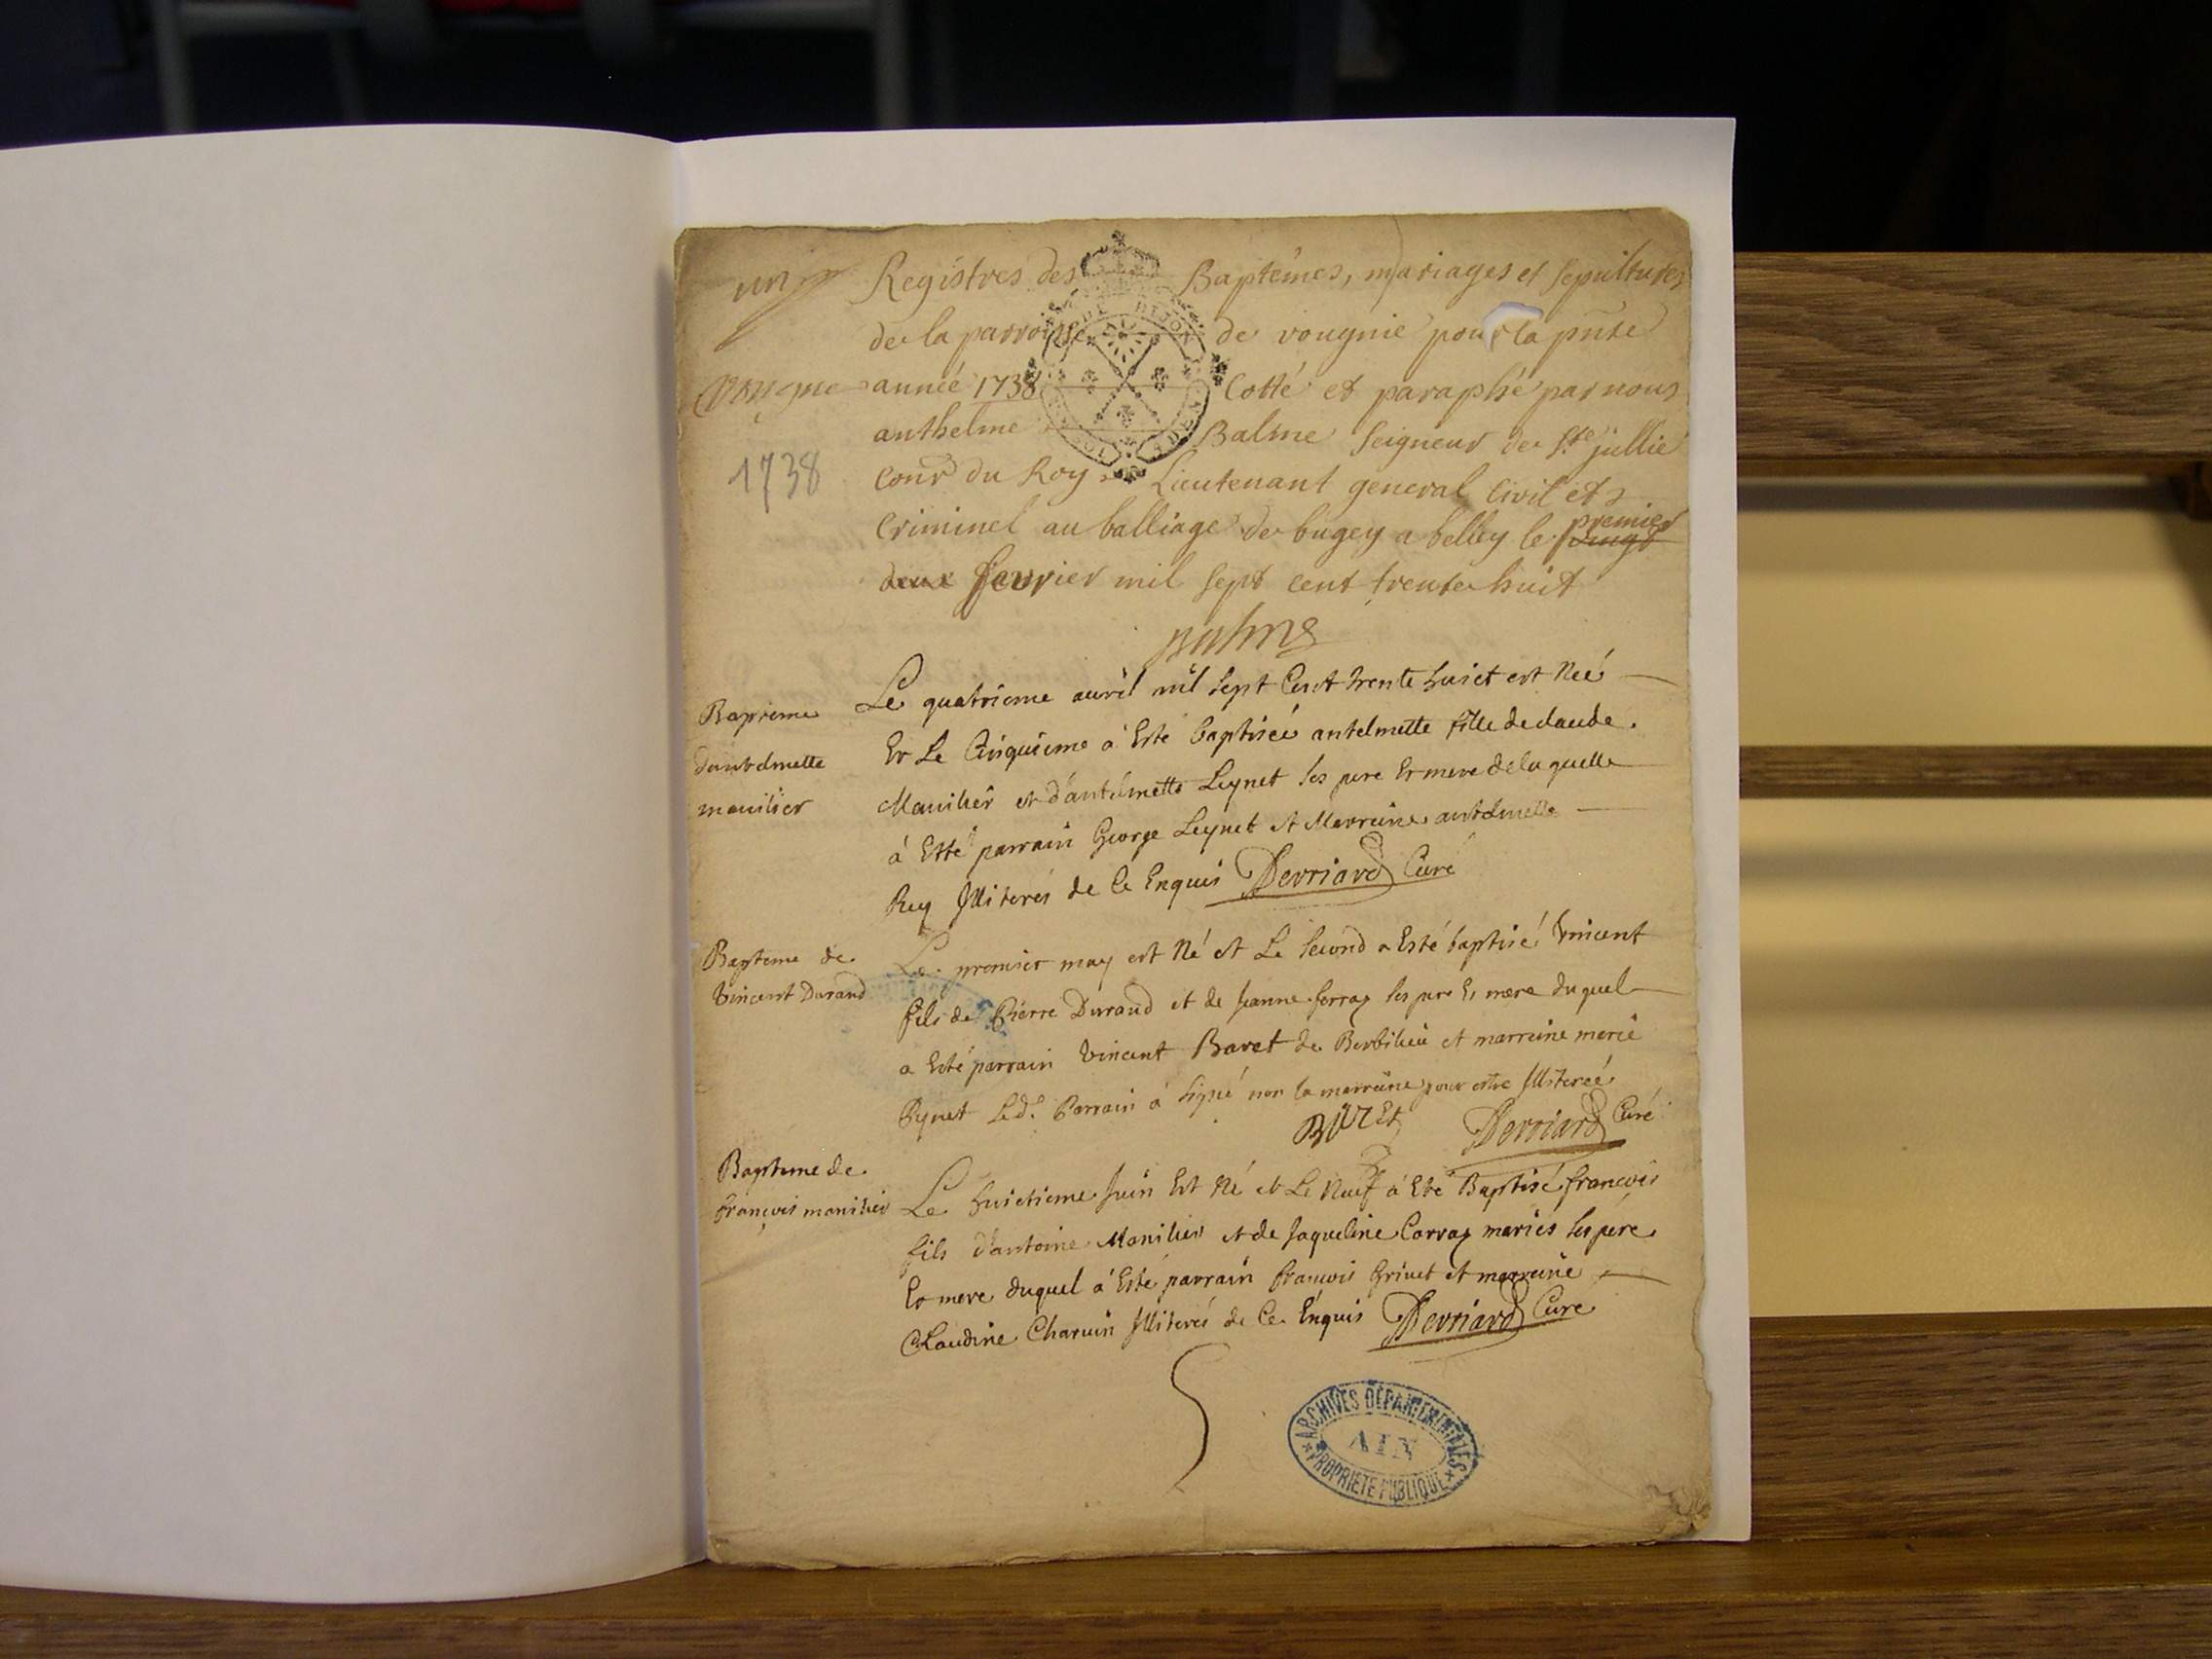 un
Registres des Baptêmes, mariages et sepultures
de la parroisse de vougnie pour la pnte
Vougne
année 1738 Cotté et paraphé par nous
anthelme Balme Seigneur de Ste jullie
1738
Conr du Roy Lieutenant general Civil et
Criminel au balliage de bugey a belley le vingt premier
deux fevrier mil sept cent trente huit
Balme
Bapteme
d'antelmette
manilier
Le quatrieme avril mil sept Cent trente huict est Neé
Et Le Cinquieme à Esté baptiseé antelmette fille de claude
Manilier et d'antelmette Leynet ses pere Et mere de laquelle
à Esté parrain George Leynet et Marreine antelmette
Rey Illiterés de Ce Enquis Derriard Curé
Bapteme de
Vincent Durand
Le premier may est Né et Le second a Esté baptisé Vincent
fils de Pierre Durand et de Jeanne ferraz ses pere Et mere duquel
a Esté parrain Vincent Baret de et marreine marie
Led. Parrain à signé non la marreine pour estre Illitereé
BARET Derriard Curé
Bapteme de
françois manilier
Le huictieme Juin Est Né et Le Neuf à Eté Baptisé françois
fils d'antoine Manilier et de Jaqueline Carraz mariés ses pere
Et mere duquel à Esté parrain françois Grinet et marreine
Claudine Charvin Illiterés de Ce Enquis Derriard Curé
ARCHIVES DÉPARTEMENTALES
AIN
PROPRIÉTÉ PUBLIQUE